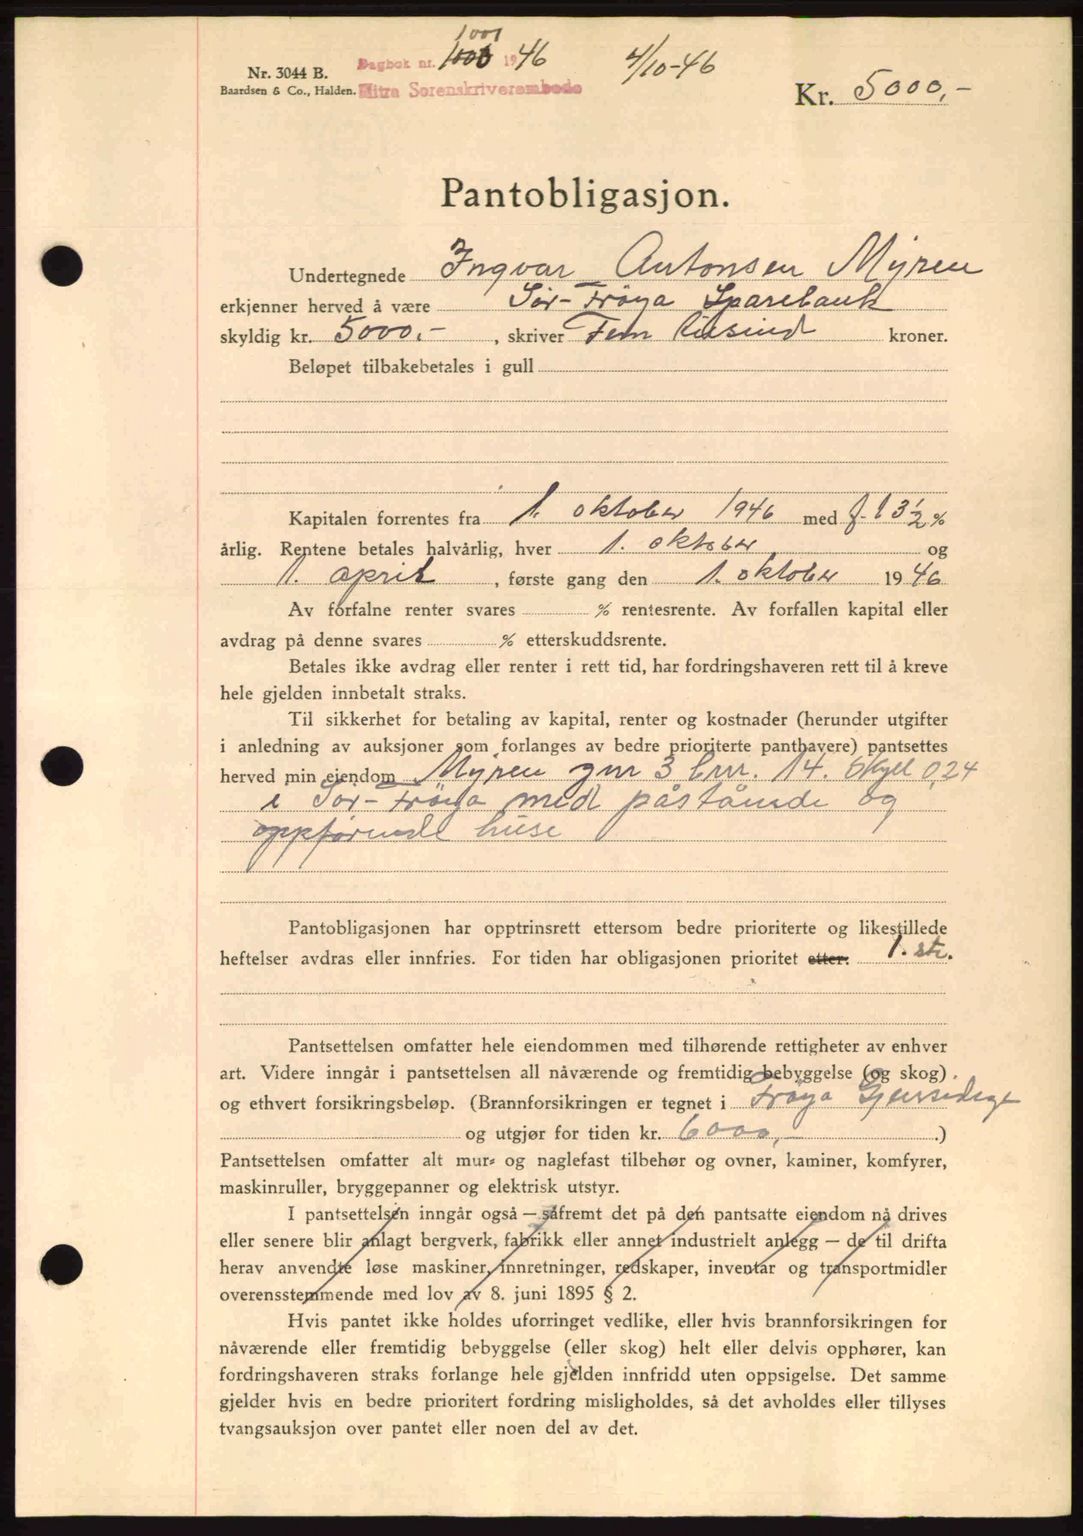 1001
Dagbok nr. 1006 1946 4/10-46
Nr. 3044 B.
Baardsen & Co., Halden. Hitra Sorenskriverembede
Kr. 5000,-
Pantobligasjon.
Undertegnede Ingvar Antonsen Myren
erkjenner herved å være Sør-Frøya Sparebank
skyldig kr. 5000,- , skriver Fem tusind kroner.
Beløpet tilbakebetales i gull
Kapitalen forrentes fra 1. oktober 1946 med f. t 3 1/2 %
årlig. Rentene betales halvårlig, hver 1. oktober og
1. april , første gang den 1. oktober 1946
Av forfalne renter svares % rentesrente. Av forfallen kapital eller
avdrag på denne svares % etterskuddsrente.
Betales ikke avdrag eller renter i rett tid, har fordringshaveren rett til å kreve
hele gjelden innbetalt straks.
Til sikkerhet for betaling av kapital, renter og kostnader (herunder utgifter
i anledning av auksjoner som forlanges av bedre prioriterte panthavere) pantsettes
herved min eiendom Myren gnr 3 bnr. 14. Skyll 0,24
i Sør-Frøya med påstående og
oppførende huse
Pantobligasjonen har opptrinsrett ettersom bedre prioriterte og likestillede
heftelser avdras eller innfries. For tiden har obligasjonen prioritet etter: 1. ste.
Pantsettelsen omfatter hele eiendommen med tilhørende rettigheter av enhver
art. Videre inngår i pantsettelsen all nåværende og fremtidig bebyggelse (og skog)
og ethvert forsikringsbeløp. (Brannforsikringen er tegnet i Frøya
og utgjør for tiden kr. 6000,- .)
Pantsettelsen omfatter alt mur- og naglefast tilbehør og ovner, kaminer, komfyrer,
maskinruller, bryggepanner og elektrisk utstyr.
I pantsettelsen inngår også — såfremt det på den pantsatte eiendom nå drives
eller senere blir anlagt bergverk, fabrikk eller annet industrielt anlegg — de til drifta
herav anvendte løse maskiner, innretninger, redskaper, inventar og transportmidler
overensstemmende med lov av 8. juni 1895 § 2.
Hvis pantet ikke holdes uforringet vedlike, eller hvis brannforsikringen for
nåværende eller fremtidig bebyggelse (eller skog) helt eller delvis opphører, kan
fordringshaveren straks forlange hele gjelden innfridd uten oppsigelse. Det samme
gjelder hvis en bedre prioritert fordring misligholdes, så det avholdes eller tillyses
tvangsauksjon over pantet eller noen del av det.